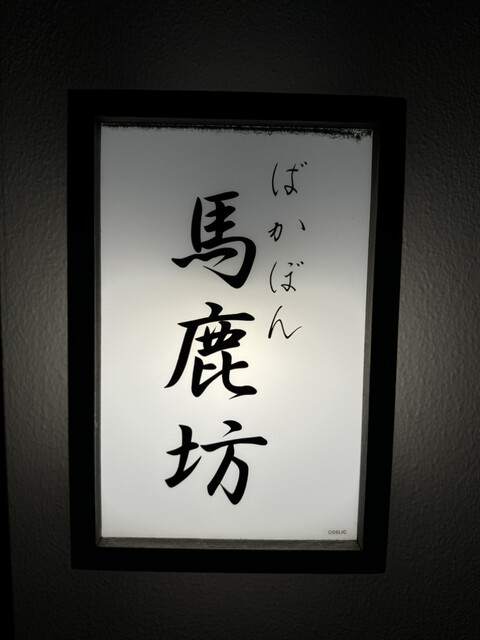 ばかぼん
馬鹿坊
ODELIC